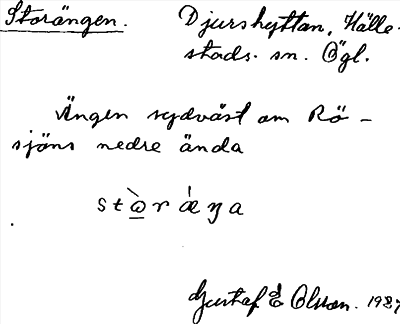 Storängen. Djurshyttan, Hälle-
stads. sn. Ögl.
Ängen sydväst om Rö-
sjöns nedre ända
stὼ̠ræ̀ŋa
Gustaf E Olsson. 1927